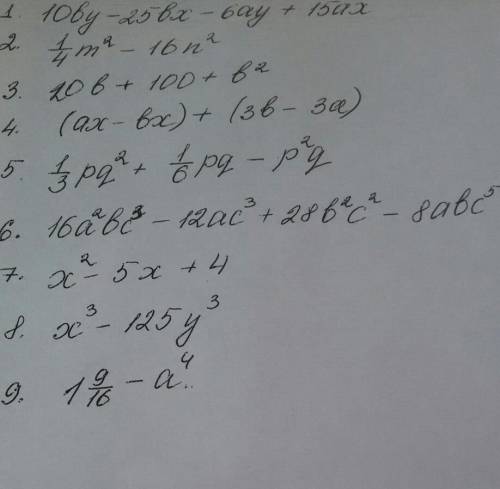 1. 10by - 25bx - 6ay + 15ax
2. 1/4 m² - 16n²
3. 20b + 100 + b²
4. (ax - bx) + (3b - 3a)
5. 1/3 pq² + 1/6 pq - p²q
6. 16a²bc³ - 12ac³ + 28b²c² - 8abc⁵
7. x² - 5x + 4
8. x³ - 125y³
9. 1 9/16 - a⁴